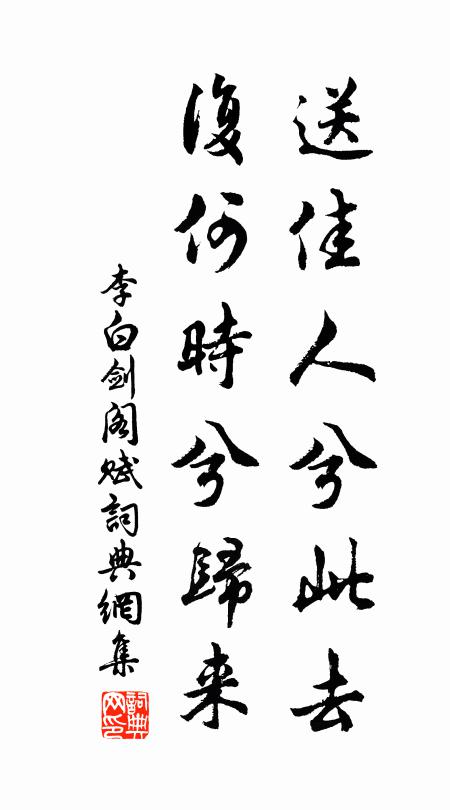 送佳人兮此去
復何時兮歸来
李白劍阁赋詞典網集
詞典網印